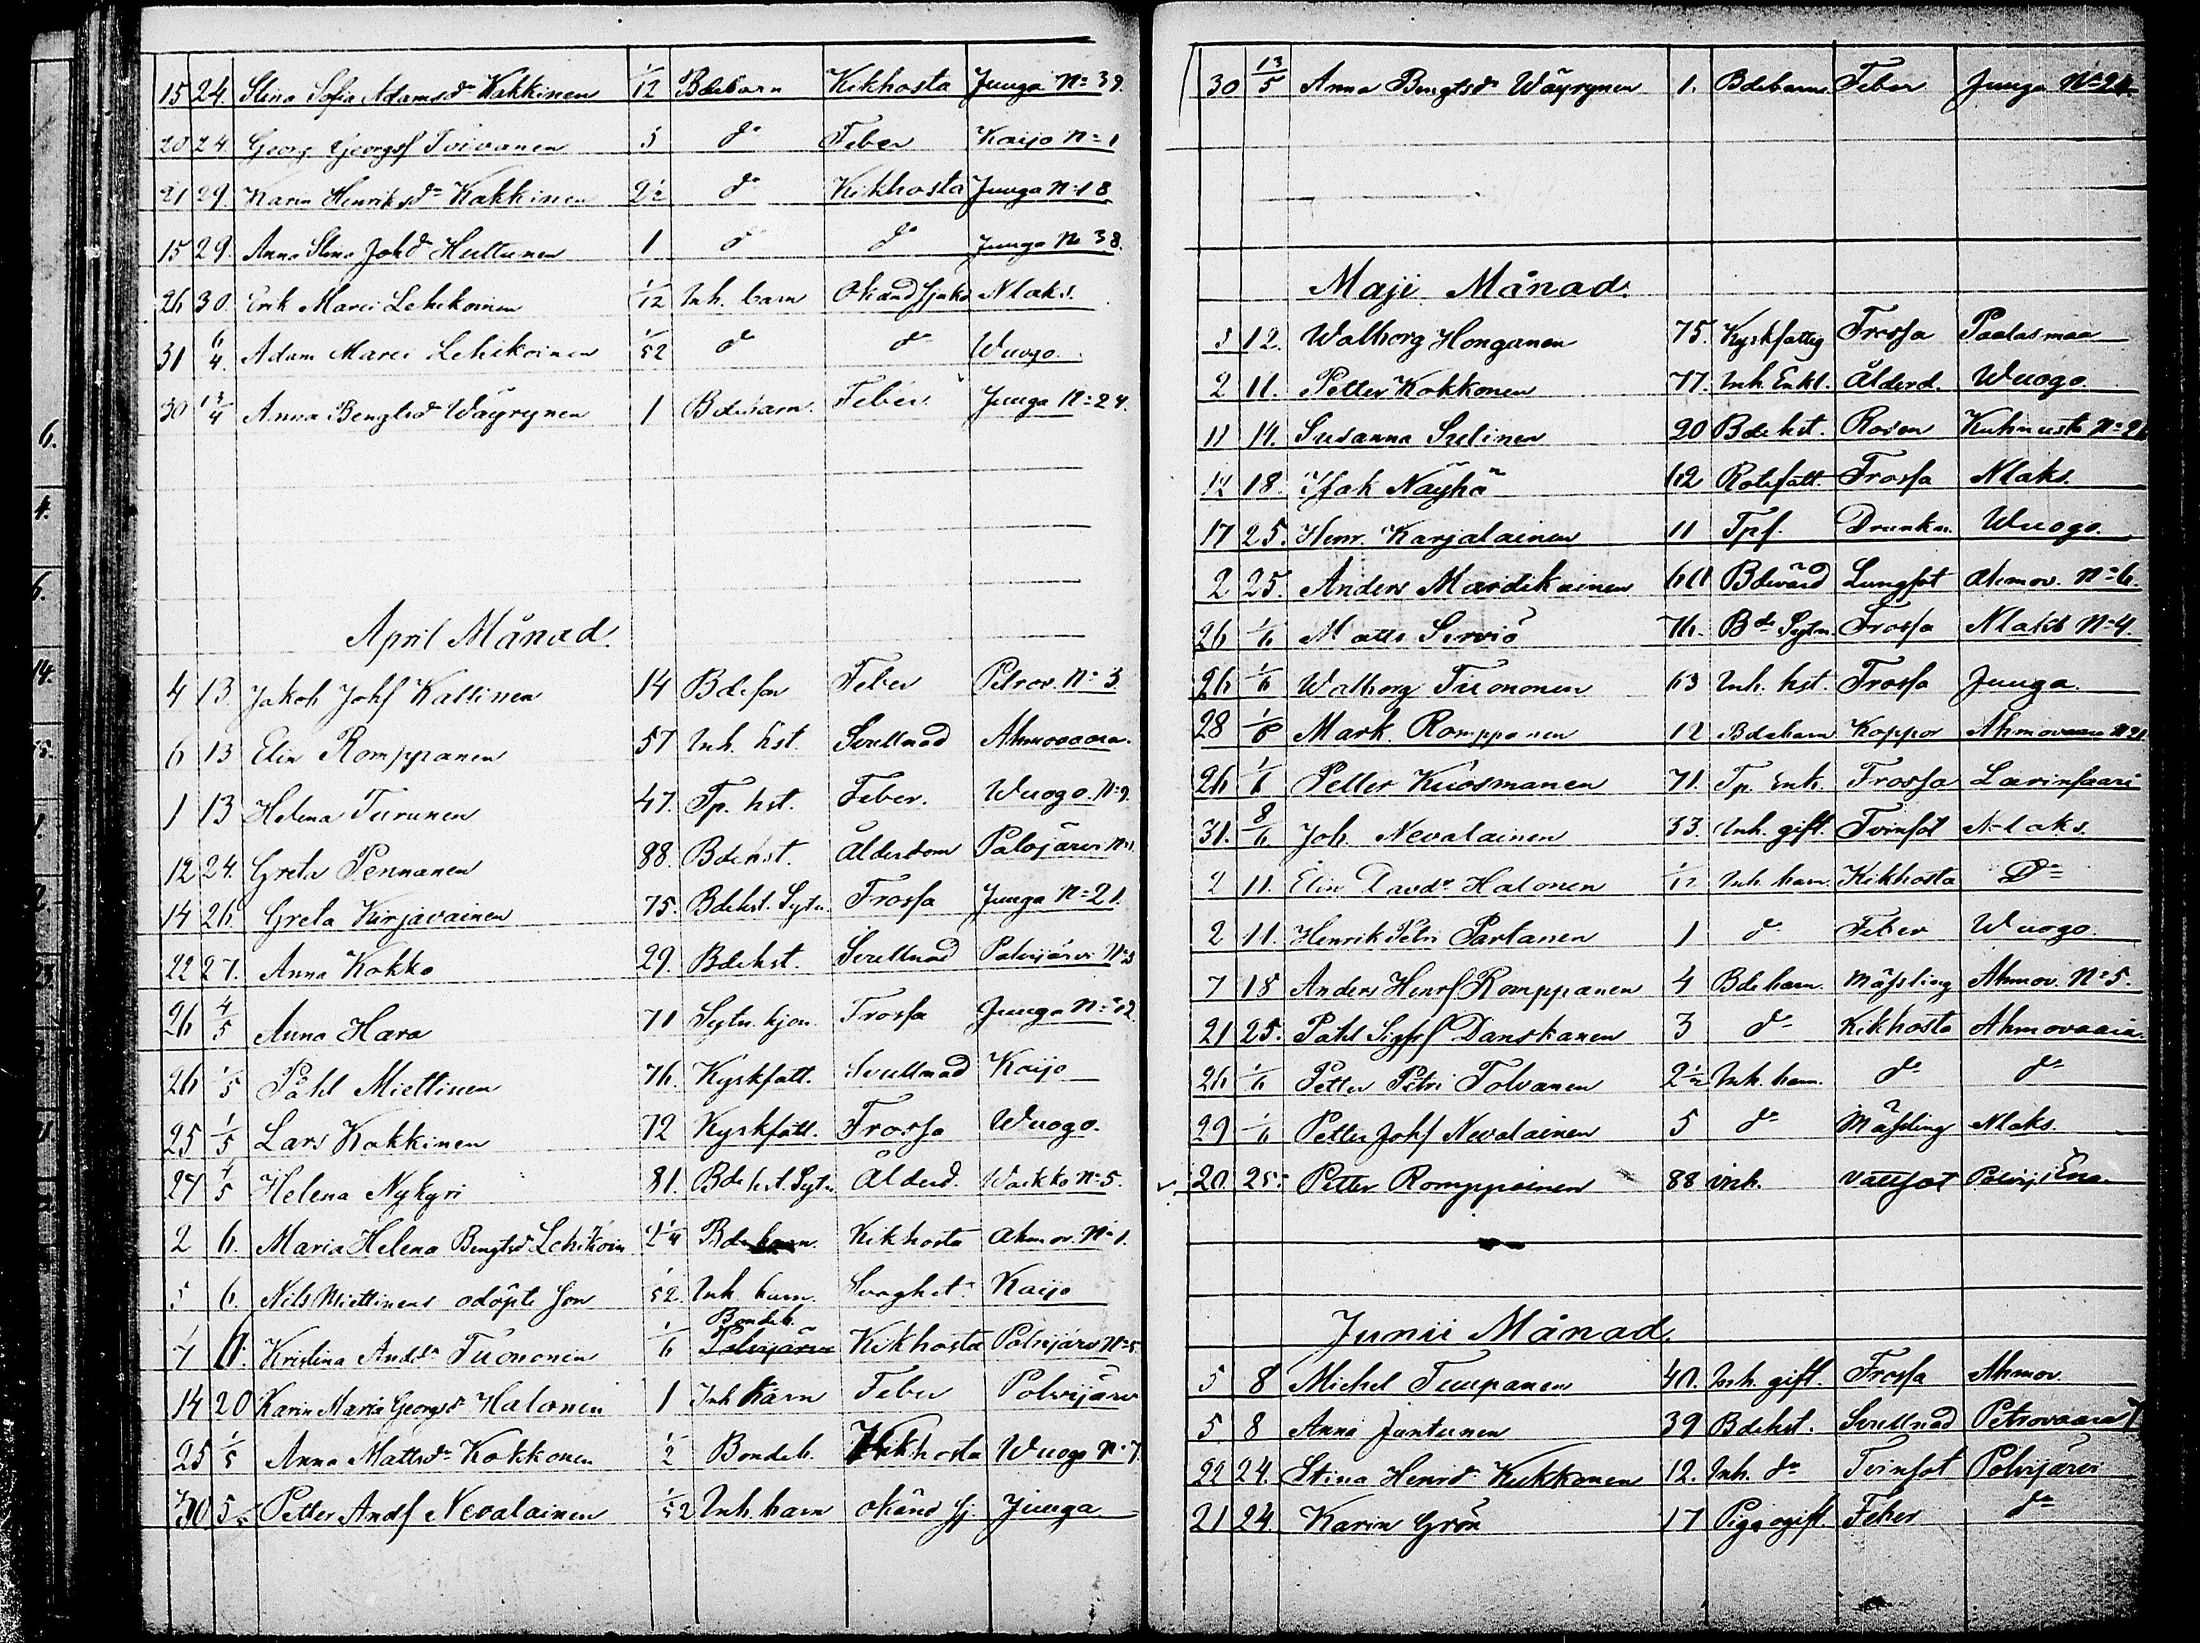 15 24. Stina Sofia Adamsdr Kakkinen 1/12 Bdebarn Kikhosta Juuga No 39.
20 24. Georg Georgsf Toivanen 3 do Feber Kaijo No 1
21 29. Karin Henriksdr Kakkinen 2½ do Kikhosta Juuga No 18
15 29. Anna Stina Johdr Huttunen 1 do do Juuga No 38.
26 30. Erik Marci Lehikoinen 1/12 Inh. barn Okänd sjukd Nlaks.
31 6/4. Adam Marci Lehikoinen 1/52 do do Wuogo.
30 13/4 Anna Bengtsdr Wäyrynen 1 Bdebarn. Feber Juuga No 24.
April Månad.
4 13. Jakob Johsf Kallinen 14 Bdeson Feber Petrov. No 3
6 13 Elin Romppanen 57 Inh. hst. Svullnad Ahmovaara.
1 13 Helena Turunen 47. Tp. hst. Feber. Wuogo. No 9.
12 24. Greta Pennanen 88. Bdehst. Ålderdom Polvijärvi No 1.
14 26 Greta Kurjavainen 75. Bdehst. Sytn. Frossa Juuga No 21.
22 27. Anna Kokko 29. Bdehst. Svullnad Polvijärvi No 3
26 4/5 Anna Hara 71 Sytn. hjon Frossa Juuga No 12.
26 1/5 Påhl Miettinen 76. Kyrkfatt. Svullnad Kaijo
25 1/5 Lars Kakkinen 72 Kyrkfatt. Frossa Wuogo.
27 4/5 Helena Nykyri 81. Bdehst. Sytn. Ålderd. Waikko No 5.
2 6. Maria Helena Bengtsdr Lehikoin 2¼ Bdebarn Kikhosta Ahmov. No 1.
5 6. Nils Miettinens odöpte son 1/52. Inh. barn. Svaghet Kaijo
Bondeb.
7 11. Kristina Andsdr Tuononen 1/6 Polvijärvi Kikhosta Polvijärvi No 5
14 20 Karin Maria Georgsdr Halonen 1 Inh barn Feber Polvijärvi
25 1/5 Anna Mattsdr Kokkonen ½ Bondeb. Kikhosta Wuogo No 7.
30 5/5 Petter Andsf Nevalainen 1/52 Inh barn okänd sj Juuga
30 13/5 Anna Bengtsdr Wäyrynen 1. Bdebarn Feber Juuga No 24.
Maji Månad.
5 12. Walborg Honganen 75. Kyrkfattig Frossa Paalasmaa
2 11. Petter Kokkonen 77. Inh. Enkl. Ålderd. Wuogo.
11 14. Susanna Sulinen 20 Bdehst. Rosen Kuhnusta No 26
14 18. Isak Näyhä 62 Rotefatt. Frossa Nlaks.
17 25. Henr. Karjalainen 11 Tpf. Drunkn. Wuogo.
2 25. Anders Mardikainen 60 Bdevärd Lungsot Ahmov. No 6.
26 1/6 Matts Servio 76. Bde Sytn. Frossa Nlaks No 4.
26 1/6 Walborg Tuononen 63 Inh. hst. Frossa Juuga.
28 1/6 Mark. Romppanen 12 Bdebarn Koppor Ahmovaara No 21
26 1/6 Petter Kuosmanen 71. Tp. Enk. Frossa Larinsaari
31. 8/6 Joh. Nevalainen 33. Inh. gift. Tvinsot N-laks.
2 11. Elin Davdr Halonen 1/12 Inh. barn. Kikhosta Do
2 11. Henrik Petri Partanen 1 do Feber Wuogo.
7 18 Anders Henrsf Romppanen 4 Bdebarn. Mässling Ahmov. No 5.
21 25. Påhl Sigfsf Danskanen 3 do Kikhosta Ahmovaara.
26 1/6 Petter Petri Tolvanen 2½ Inh. barn. do do
29 1/6 Petter Johsf Nevalainen 5 do Mässling Nlaks.
20. 25 Petter Romppainen 88 inh. Vattsot Polvij
Junii Månad.
5 8 Michel Tuupanen 40. Inh. gift. Frossa Ahmov.
5 8 Anna Jantunen 39 Bdehst. Svullnad Petrovaara 7
22 24. Stina Henrdr Kukkonen 12. Inh. dr Tvinsot Polvijärvi
21 24. Karin Grön 17 Piga ogift. Feber do